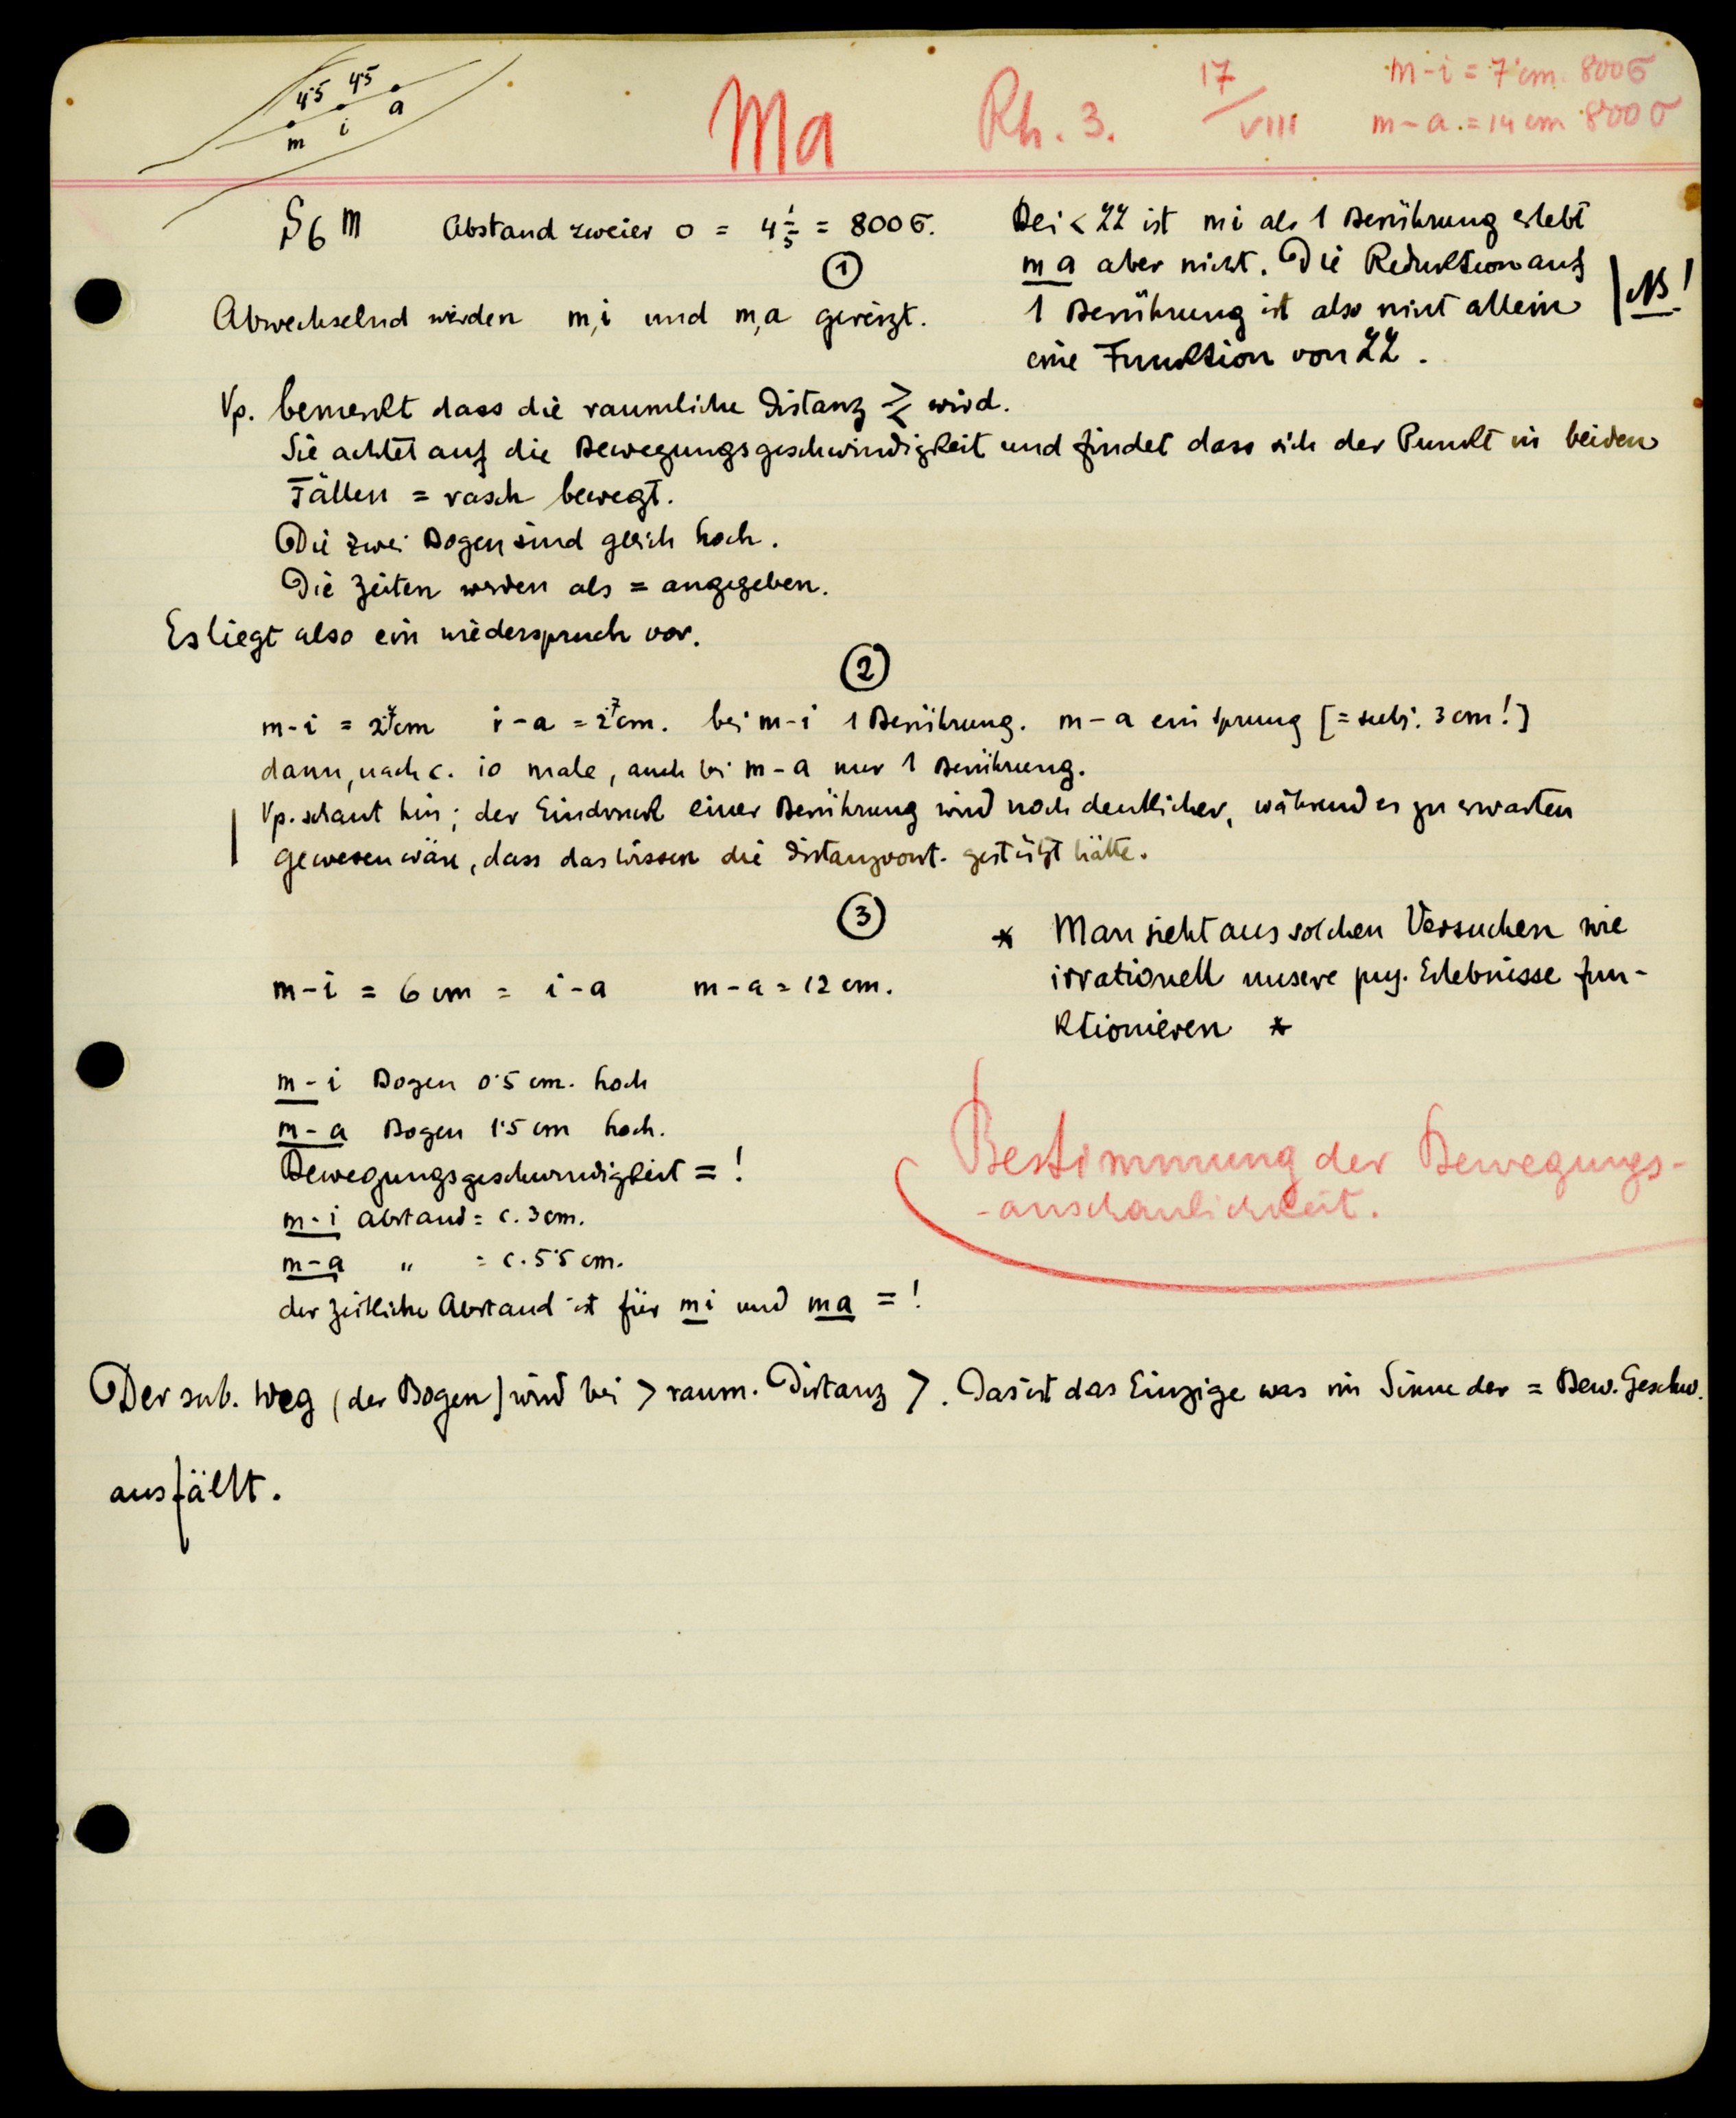 45 45
m i a
Ma
Rh. 3.
17/VIII
m-i = 7 cm 800σ
m-a = 14 cm 800σ
S6 m Abstand zweier o = 4 1/5 = 800σ.
Bei < ZZ ist mi als 1 Berührung erlebt
ma aber nicht. Die Reduktion auf
1 Berührung ist also nicht allein
eine Funktion von ZZ.
NB!
1
Abwechselnd werden m,i und m,a gereizt.
Vp. bemerkt dass die raumliche Distanz ≷ wird.
Sie achtet auf die Bewegungsgeschwindigkeit und findet dass sich der Punkt in beiden
Fällen = rasch bewegt.
Die zwei Bogen sind gleich hoch.
Die Zeiten werden als = angegeben.
Es liegt also ein wiederspruch vor.
2
m-i = 2 cm i-a = 2 cm. bei m-i 1 Berührung. m-a ein Sprung [= subj. 3 cm!]
dann, nach c. 10 male, auch bei m-a nur 1 Berührung.
Vp. schaut hin; der Eindruck einer Berührung wird noch deutlicher, während es zu erwarten
gewesen wäre, dass das Wissen die Distanzvorst. gestützt hätte.
3
m-i = 6 cm = i-a m-a = 12 cm.
* Man sieht aus solchen Versuchen wie
irrationell unsere psy. Erlebnisse fun-
ktionieren *
m-i Bogen 0·5 cm. hoch
m-a Bogen 1·5 cm hoch.
Bewegungsgeschwindigkeit = !
m-i Abstand = c. 3 cm.
m-a " = c. 5·5 cm.
der zeitliche Abstand ist für mi und ma = !
Bestimmung der Bewegungs-
-anschaulichkeit.
Der sub. Weg (der Bogen) wird bei > raum. Distanz >. Das ist das Einzige was im Sinne der = Bew. Geschw.
ausfällt.